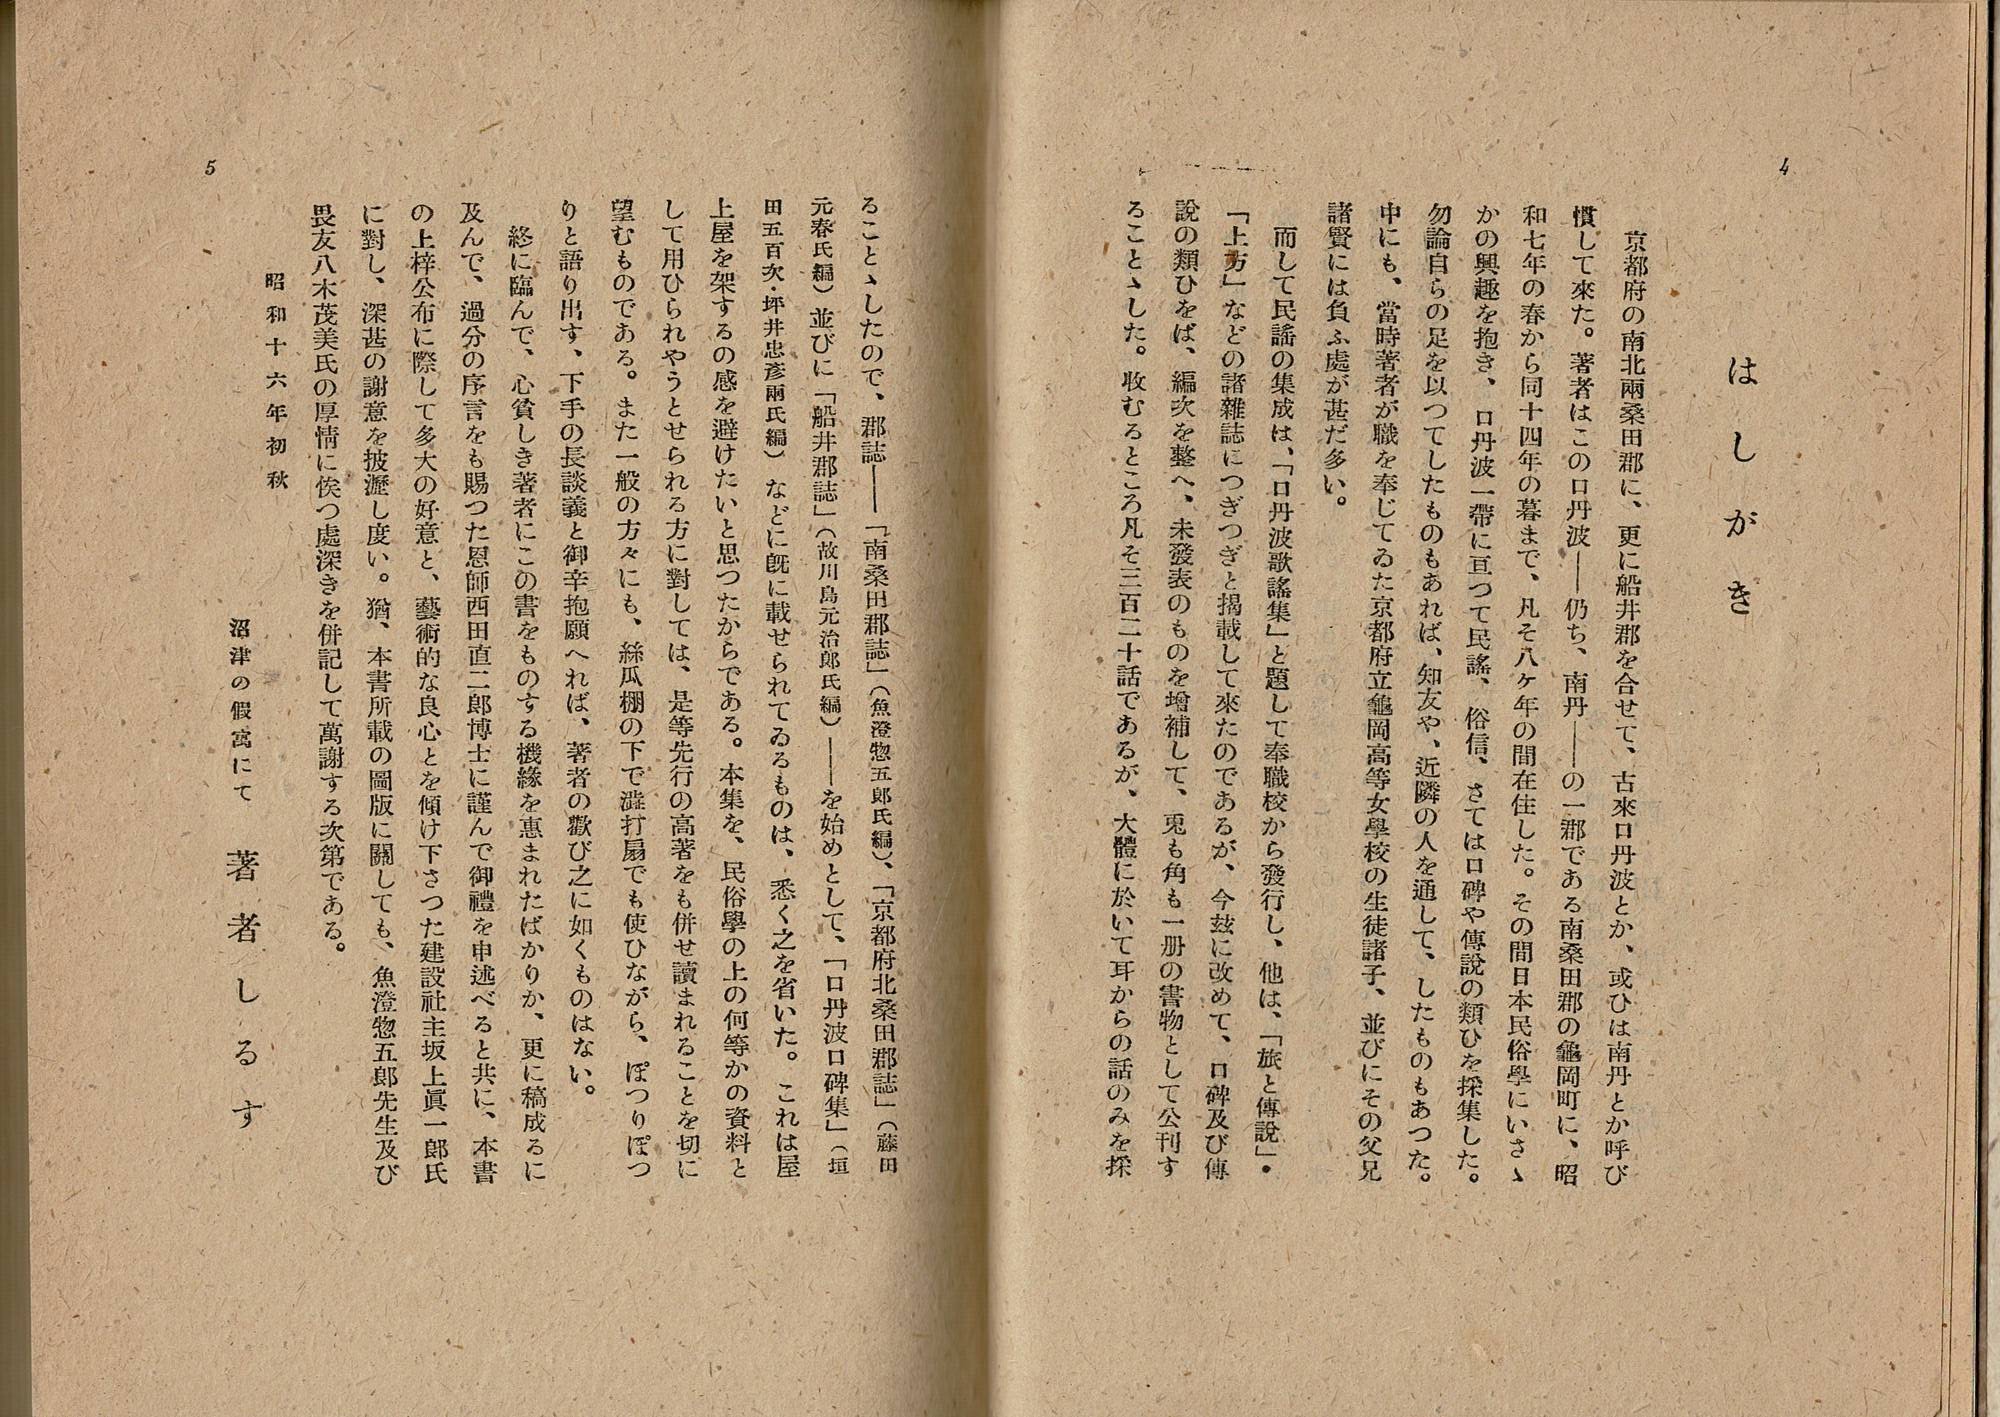 4
はしがき
京都府の南北兩桑田郡に、更に船井郡を合せて、古來口丹波とか、或ひは南丹とか呼び
慣して來た。著者はこの口丹波——仍ち、南丹——の一郡である南桑田郡の龜岡町に、昭
和七年の春から同十四年の暮まで、凡そ八ケ年の間在住した。その間日本民俗學にいさゝ
かの興趣を抱き、口丹波一帶に亘つて民謠、俗信、さては口碑や傳說の類ひを採集した。
勿論自らの足を以つてしたものもあれば、知友や、近隣の人を通して、したものもあつた。
中にも、當時著者が職を奉じてゐた京都府立龜岡高等女學校の生徒諸子、並びにその父兄
諸賢には負ふ處が甚だ多い。
而して民謠の集成は、「口丹波歌謠集」と題して奉職校から發行し、他は、「旅と傳說」・
「上方」などの諸雜誌につぎつぎと揭載して來たのであるが、今玆に改めて、口碑及び傳
說の類ひをば、編次を整へ、未發表のものを增補して、兎も角も一册の書物として公刊す
ることゝした。收むるところ凡そ三百二十話であるが、大體に於いて耳からの話のみを採
5
ることゝしたので、郡誌——「南桑田郡誌」（魚澄惣五郎氏編）、「京都府北桑田郡誌」（藤田
元春氏編）並びに「船井郡誌」（故川島元治郎氏編）——を始めとして、「口丹波口碑集」（垣
田五百次・坪井忠彥兩氏編）などに既に載せられてゐるものは、悉く之を省いた。これは屋
上屋を架するの感を避けたいと思つたからである。本集を、民俗學の上の何等かの資料と
して用ひられやうとせられる方に對しては、是等先行の高著をも併せ讀まれることを切に
望むものである。また一般の方々にも、絲瓜棚の下で澁打扇でも使ひながら、ぽつりぽつ
りと語り出す、下手の長談義と御辛抱願へれば、著者の歡び之に如くものはない。
終に臨んで、心貧しき著者にこの書をものする機緣を惠まれたばかりか、更に稿成るに
及んで、過分の序言をも賜つた恩師西田直二郎博士に謹んで御禮を申述べると共に、本書
の上梓公布に際して多大の好意と、藝術的な良心とを傾け下さつた建設社主坂上眞一郎氏
に對し、深甚の謝意を披瀝し度い。猶、本書所載の圖版に關しても、魚澄惣五郎先生及び
畏友八木茂美氏の厚情に俟つ處深きを併記して萬謝する次第である。
昭和十六年初秋
沼津の假寓にて 著者しるす